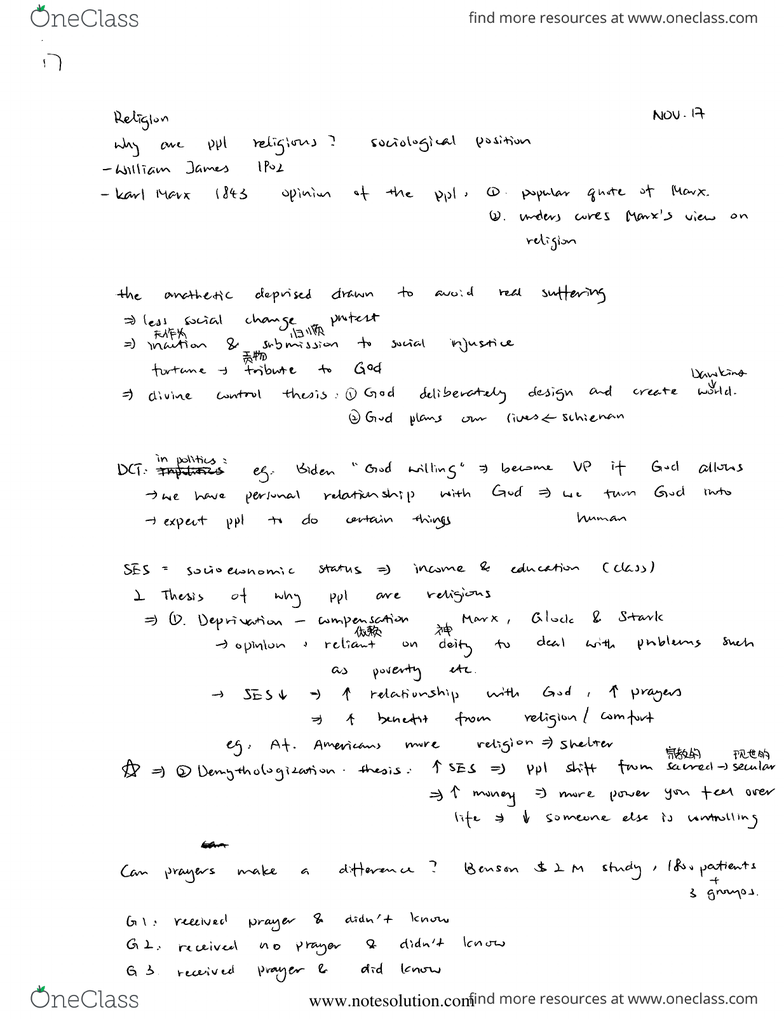 OneClass
find more resources at www.oneclass.com
17
Religion NOV. 17
why are ppl religions? sociological position
- William James 1902
- Karl Marx 1843 opinion of the ppl, ①. popular quote of Marx.
②. unders cores Marx's view on
religion
the anathetic deprised drawn to avoid real suffering
⇒ less social change protest
无作为 归顺
⇒ inaction & submission to social injustice
贡物
fortune → tribute to God
Dawkins
⇒ divine control thesis: ① God deliberately design and create world.
② God plans our lives ← schieman
in politics:
DCT: eg. Biden "God willing" ⇒ become VP if God allows
→ we have personal relationship with God ⇒ we turn God into
→ expect ppl to do certain things human
SES = socioeconomic status ⇒ income & education (class)
2 Thesis of why ppl are religions
⇒ ①. Deprivation - compensation Marx, Glock & Stark
依赖 神
→ opinion, reliant on deity to deal with problems such
as poverty etc.
→ SES↓ ⇒ ↑ relationship with God, ↑ prayers
⇒ ↑ benefit from religion/ comfort
eg. Af. Americans more religion ⇒ shelter
宗教的 现世的
☆ ⇒ ② Demythologization thesis: ↑ SES ⇒ ppl shift from sacred → secular
⇒ ↑ money ⇒ more power you feel over
life ⇒ ↓ someone else is controlling
Can prayers make a difference? Benson $2M study, 1800 patients
+
3 groups.
G1: received prayer & didn't know
G2: received no prayer & didn't know
G3 received prayer & did know
OneClass
www.notesolution.com
find more resources at www.oneclass.com